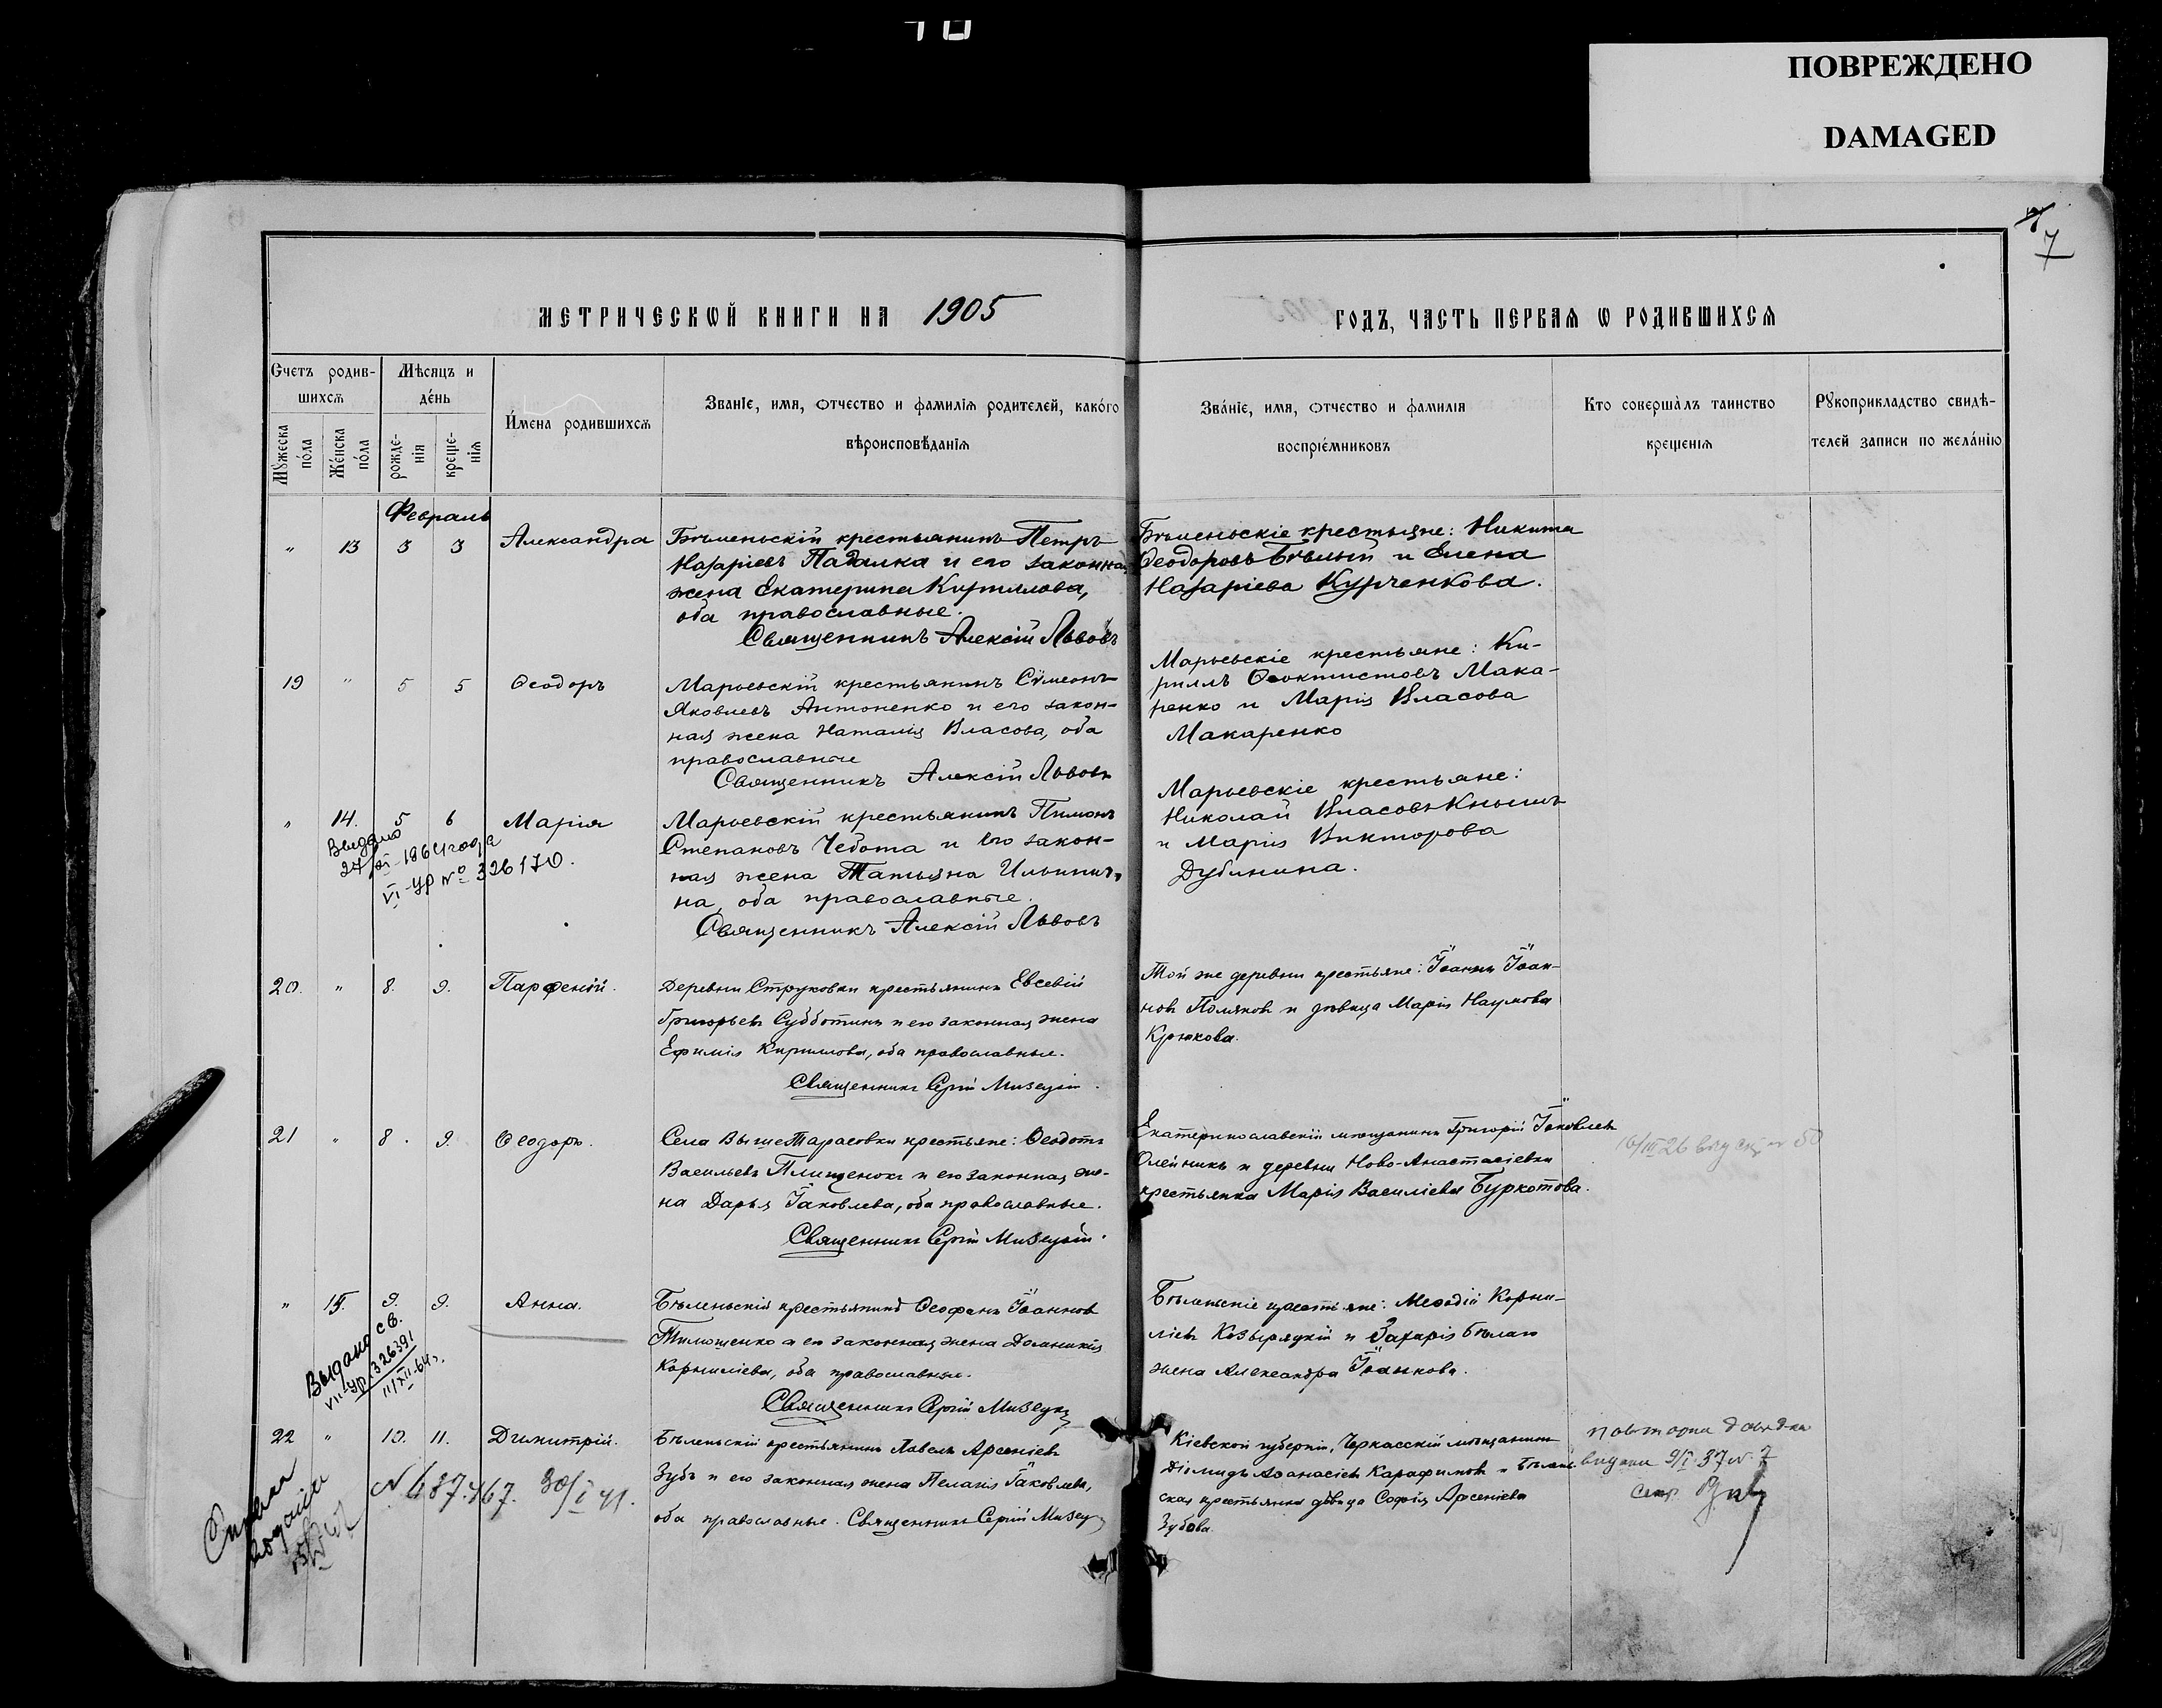 ПОВРЕЖДЕНО
DAMAGED
7
МЕТРИЧЕСКѠЙ КНИГИ НА 1905 ГОДЪ, ЧАСТЬ ПЕРВАЯ Ѡ РОДИВШИХСЯ
Счетъ родив-
шихся
Мꙋжеска пола
Женска пола
Мѣсяцъ и
день
рожде-
нія
креще-
нія
Имена родившихся
Званіе, имя, отчество и фамилія родителей, какого
вѣроисповѣданія
Званіе, имя, отчество и фамилія
воспріемниковъ
Кто совершалъ таинство
крещенія
Рꙋкоприкладство свидѣ-
телей записи по желанію
Февраль
" 13 3 3 Александра
Бѣленьскій крестьянинъ Петръ
Назаріевъ Падалка и его законная
жена Екатерина Кириллова,
оба православные.
Священникъ Алексій Львовъ
Бѣленьскіе крестьяне: Никита
Ѳеодоровъ Бѣлый и Елена
Назаріева Курченкова.
19 " 5 5 Ѳеодоръ
Марьевскій крестьянинъ Сѵмеонъ
Яковлевъ Антоненко и его закон-
ная жена Наталія Власова, оба
православные
Священникъ Алексій Львовъ
Марьевскіе крестьяне: Ки-
риллъ Ѳеоктистовъ Мака-
ренко и Марія Власова
Макаренко
" 14. 5 6 Марія
Выдано
27/XI 1964 года
VI-УР № 326170.
Марьевскій крестьянинъ Пимонъ
Степановъ Чебота и его закон-
ная жена Татьяна Ильинич-
на, оба православные.
Священникъ Алексій Львовъ
Марьевскіе крестьяне:
Николай Власовъ Кнышъ
и Марія Викторова
Дубинина.
20. " 8. 9. Парѳеній.
Деревни Струковки крестьянинъ Евсевій
Григорьевъ Субботинъ и его законная жена
Ефимія Кириллова, оба православные.
Священникъ Сергій
Той же деревни крестьяне: Іоаннъ Іоан-
новъ Поляковъ и дѣвица Марія Наумова
Крюкова.
21 " 8. 9. Ѳеодоръ.
Села ВышеТарасовки крестьяне: Ѳеодотъ
Васильевъ Плищенокъ и его законная же-
на Дарья Іаковлева, оба православные.
Священникъ Сергій
Екатеринославскій мѣщанинъ Григорій Іаковлевъ
Олейникъ и деревни Ново-Анастасіевки
крестьянка Марія Василіева Буркотова.
" 15. 9. 9. Анна.
Выдано св.
VII-УР 326391
11/XII-64г.
Бѣленьскій крестьянинъ Ѳеофанъ Іоанновъ
Тимошенко и его законная жена Домникія
Корниліева, оба православные.
Священникъ Сергій
Бѣленьскіе крестьяне: Меѳодій Корни-
ліевъ Козыряцкій и Захарія Бѣлаго
жена Александра Іоаннова.
22 " 10. 11. Димитрій.
30/I 41.
Бѣленьскій крестьянинъ Павелъ Арсеніевъ
Зубъ и его законная жена Пелагія Іаковлева,
оба православные. Священникъ Сергій
Кіевской губерніи, Черкасскій мѣщанинъ
Діомидъ Аѳанасіевъ Карафиновъ и Бѣлень-
ская крестьянка дѣвица Софія Арсеніева
Зубова.
повторна довідка
видана 9/I 37 № 7